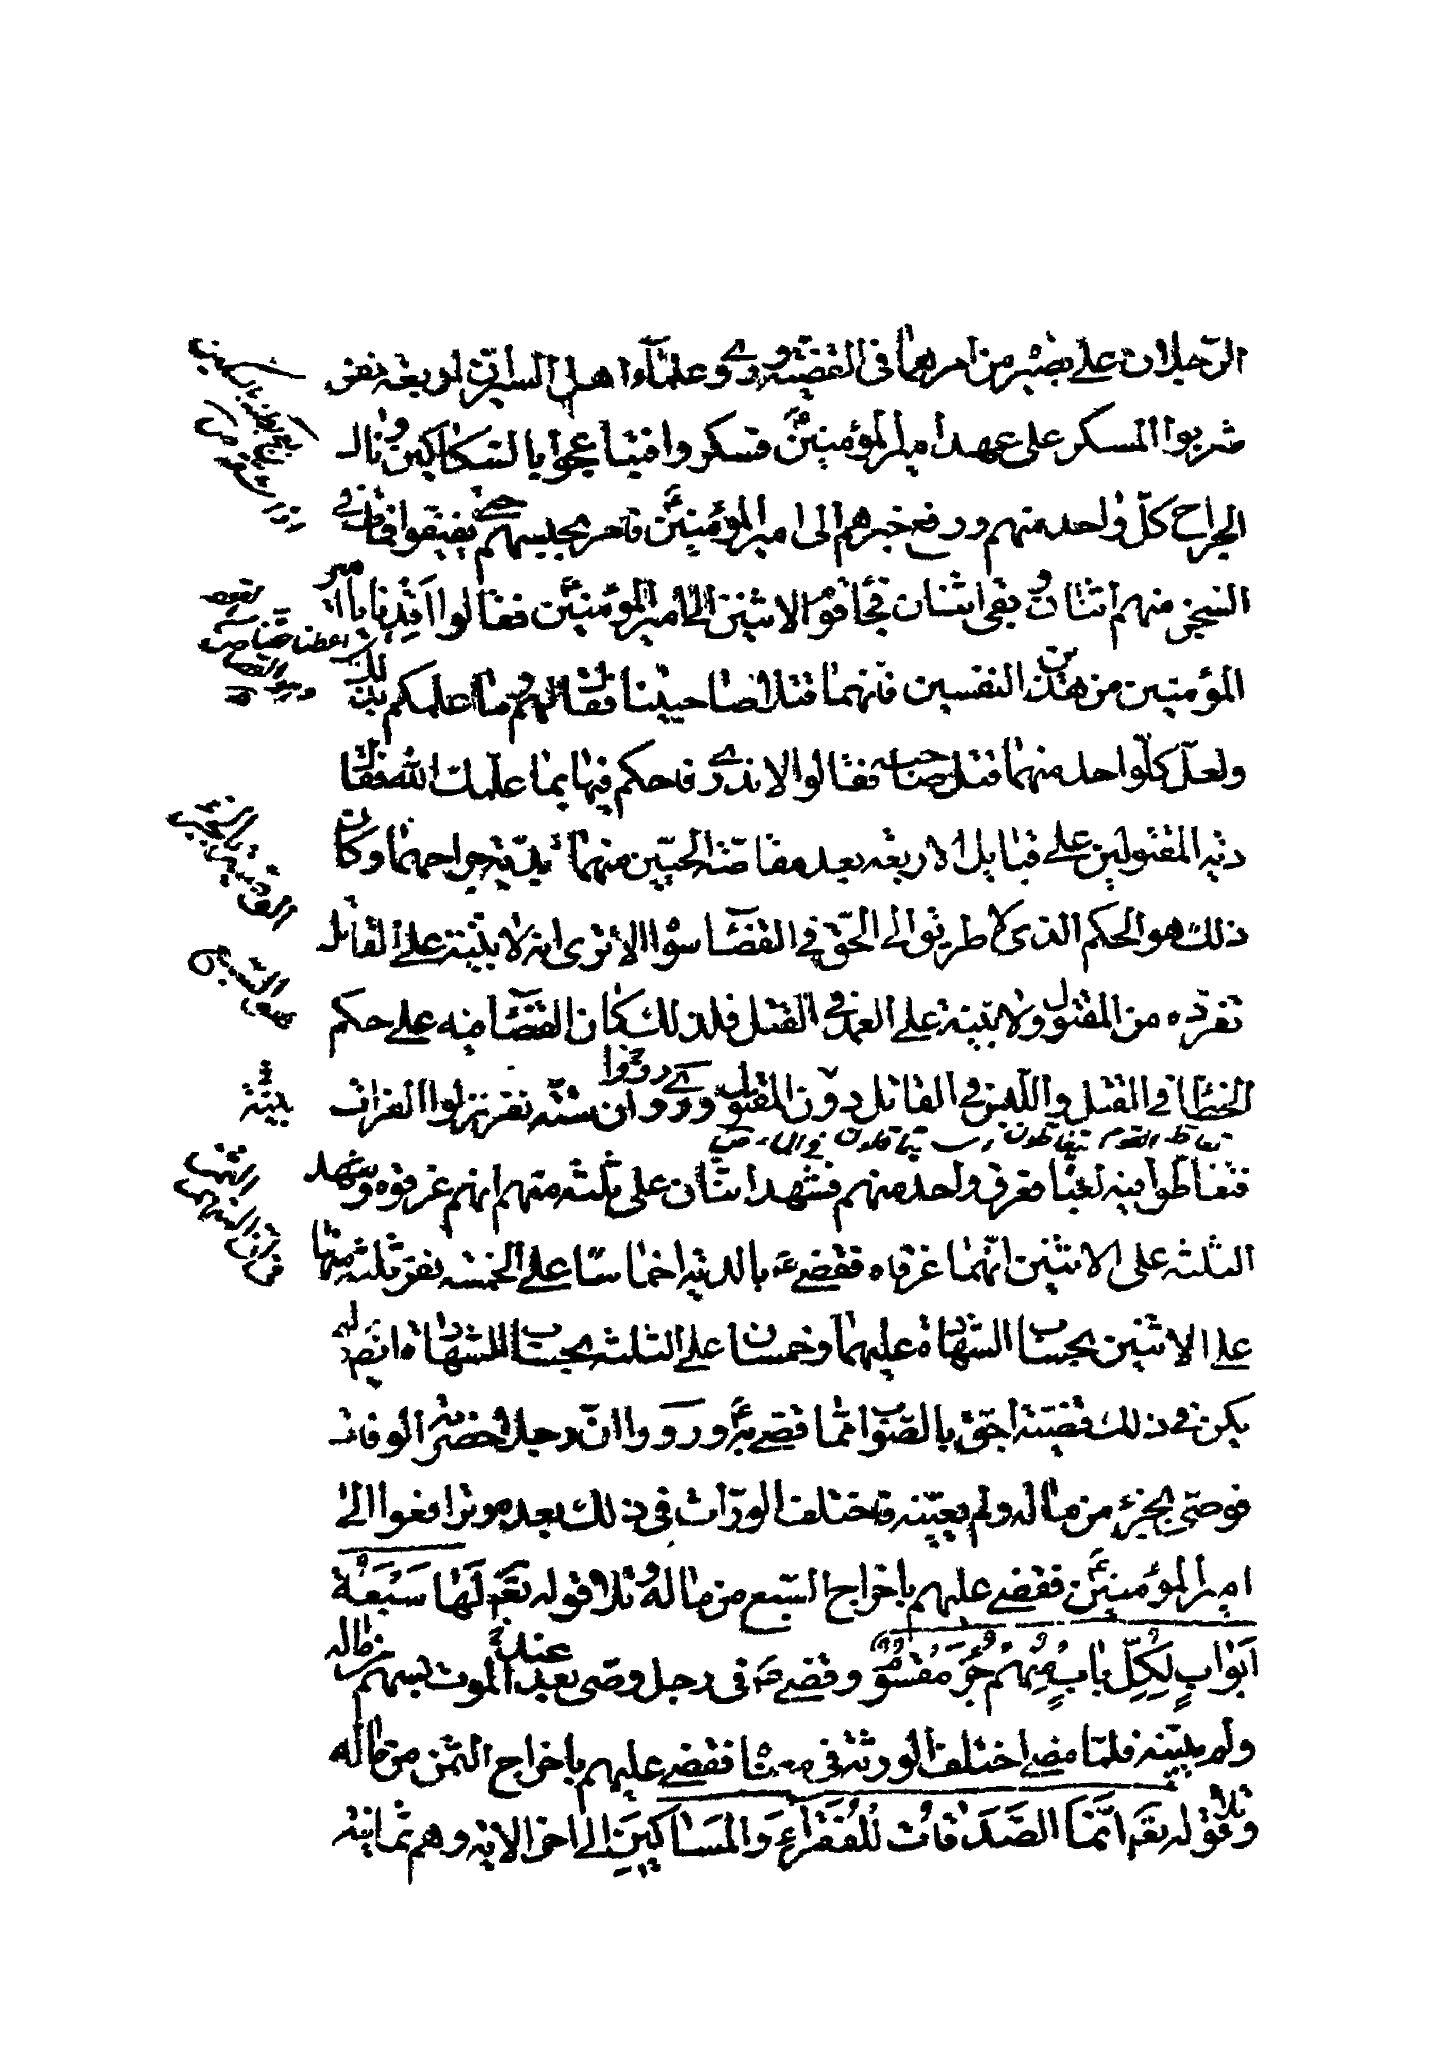 الرّجلان على بصيرة من امرهما فى القضيّة وروى علماء اهل السير ان اربعة نفر
شربوا المسكر على عهد امير المؤمنين ع فسكروا فتباعجوا بالسّكاكين ونال
الجراح كلّ واحد منهم ورفع خبرهم الى امير المؤمنين ع فامر بحبسهم حتى يفيقوا فمات فى
السّجن منهم اثنان وبقى اثنان فجاء قوم الاثنين الى امير المؤمنين ع فقالوا اقدنا يا امير
المؤمنين من هذين النفسين فانهما قتلا صاحبينا فقال لهم وما علمكم بذلك
ولعلّ كلّ واحد منهما قتل صاحبه فقالوا لا ندرى فاحكم فيها بما علمك الله فقال
دية المقتولين على قبايل الاربعة بعد مقاصّة الحيّين منهما بدية جراحهما وكان
ذلك هو الحكم الذى لا طريق الى الحقّ فى القضاء سواه الا ترى انه لا بيّنة على القاتل
تفرده من المقتول ولا بيّنة على العمد فى القتل فلذلك كان القضاء منه على حكم
الخطاء فى القتل واللبس فى القاتل دون المقتول وروى ورووا ان ستّة نفر نزلوا الفرات
فتغاطوا فيه لعبا فغرق واحد منهم فشهد اثنان على ثلثة منهم انهم غرقوه وشهد
الثلثة على الاثنين انّهما غرقاه فقضى ع بالدية اخماسا على الخمسة نفر ثلثة منها
على الاثنين بحساب الشهادة عليهما وخمسان على الثلثة بحساب الشهادة ايضا ولم
يكن فى ذلك قضيّة احقّ بالصّواب ممّا قضى به ع ورووا انّ رجلا حضرته الوفاة
فوصّى بجزء من ماله ولم يعيّنه فاختلف الورّاث فى ذلك بعده وترافعوا الى
امير المؤمنين ع فقضى عليهم باخراج السّبع من ماله وتلا قوله تعم لَهَا سَبْعَةُ
اَبْوَابٍ لِكُلِّ بابٍ مِنْهُمْ جُزْءٌ مَقْسُومٌ وقضى ع فى رجل وصّى عند الموت بسهم من ماله
ولم يبيّنه فلمّا مضى اختلف الورثة فى معناه فقضى عليهم باخراج الثمن من ماله
وتلا قوله تعم اِنَّمَا الصَّدَقَاتُ لِلْفُقَرَاءِ وَالْمَسَاكِينِ الى اخر الاية وهم ثمانية